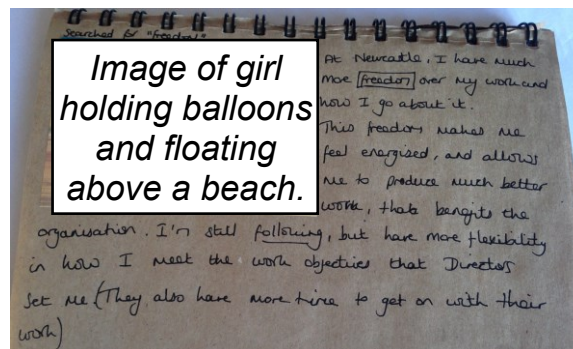 Searched for "freedom"
Image of girl
holding balloons
and floating
above a beach.
At Newcastle, I have much
more freedom over my work and
how I go about it.
This freedom makes me
feel energised, and allows
me to produce much better
work, thats benefits the
organisation. I'm still following, but have more flexibility
in how I meet the work objectives that Directors
set me (They also have more time to get on with their
work)